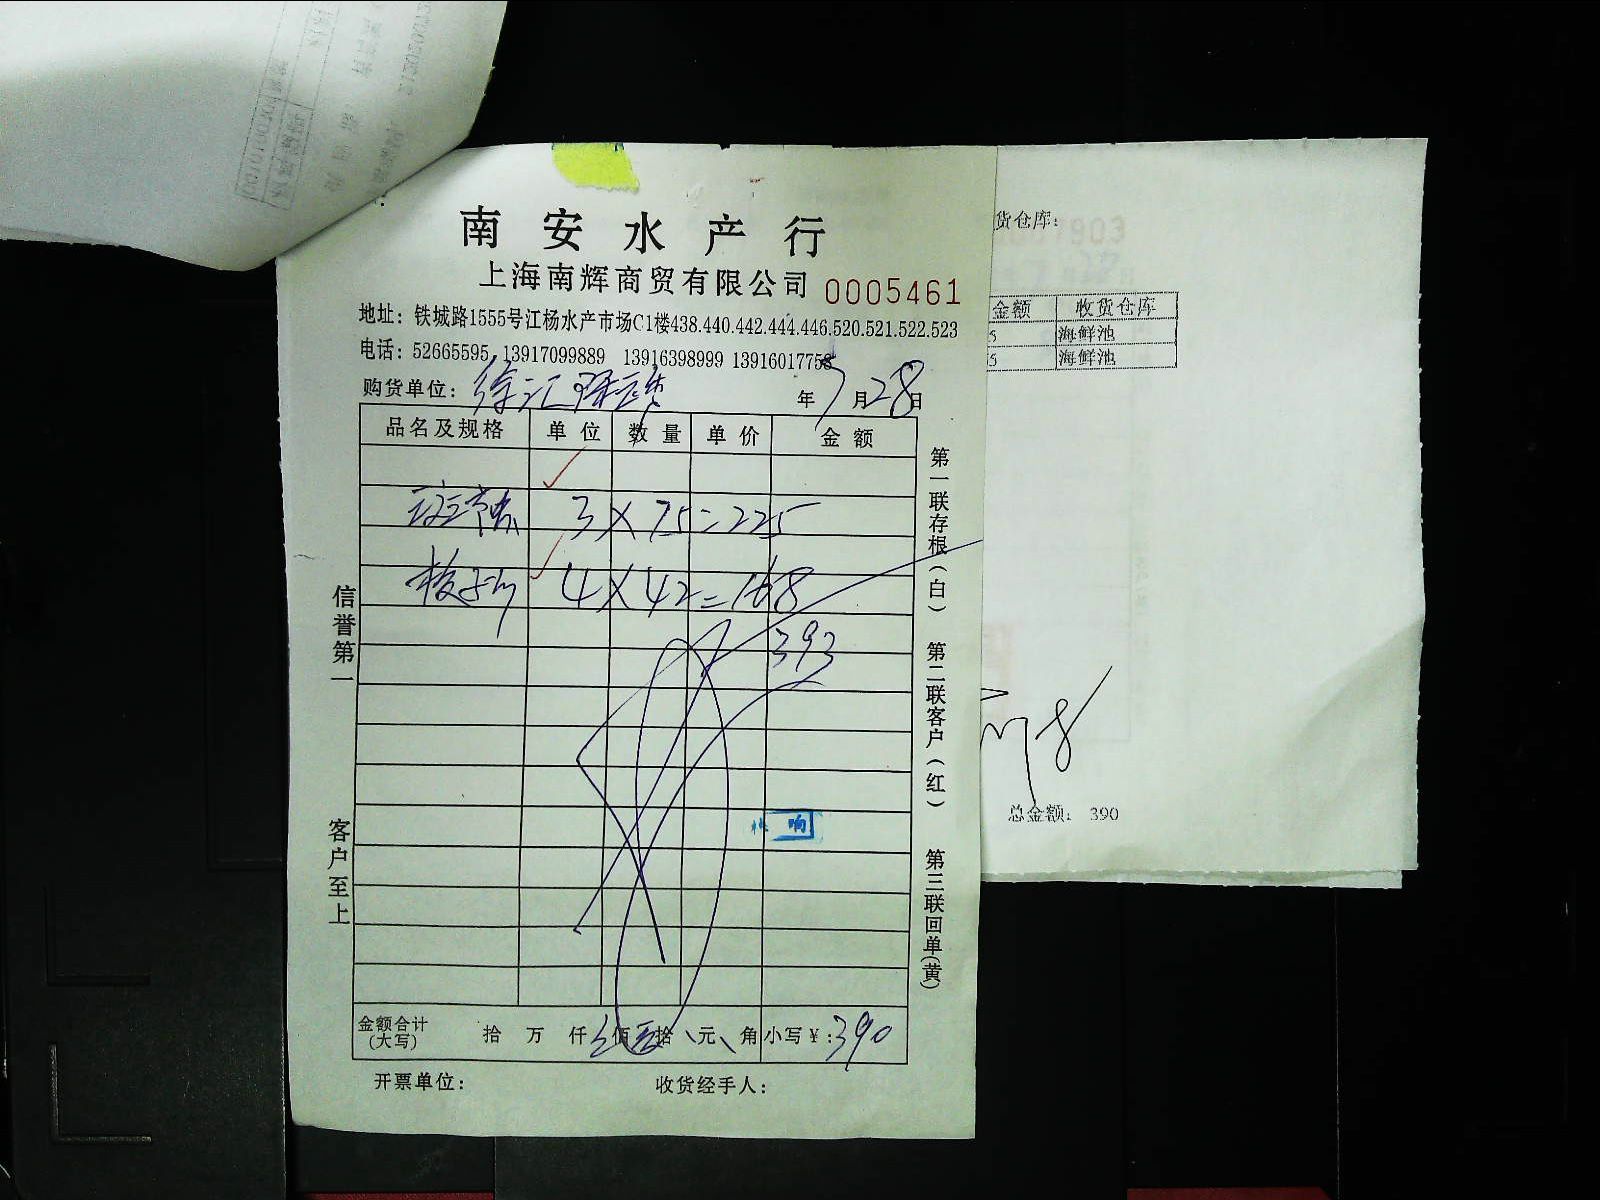 南安水产行
上海南辉商贸有限公司 0005461
地址：铁城路1555号江杨水产市场C1楼438.440.442.444.446.520.521.522.523
电话：52665595 13917099889 13916398999 1391601775
购货单位：徐汇 年7月28日
品名及规格 单位 数量 单价 金额
3×75=225
4×42=168
393
响
金额合计(大写) 拾 万 仟 佰 拾 元 角 小写￥:390
开票单位： 收货经手人：
信誉第一
客户至上
第一联存根(白)
第二联客户(红)
第三联回单(黄)
货仓库：
金额 收货仓库
5 海鲜池
5 海鲜池
总金额： 390